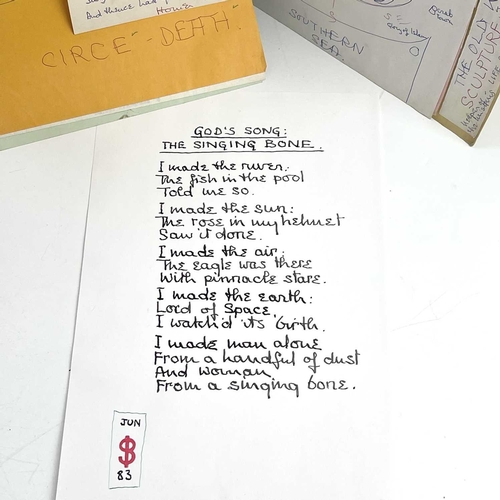 And thence had
Homer
CIRCE - DEATH.
SOUTHERN
SEA
THE OLD
SCULPTURE
GOD'S SONG:
THE SINGING BONE.
I made the river:
The fish in the pool
Told me so.
I made the sun:
The rose in my helmet
Saw it done.
I made the air:
The eagle was there
With pinnacle stare.
I made the earth:
Lord of Space,
I watch'd its birth.
I made man alone
From a handful of dust
And woman
From a singing bone.
JUN
$
83